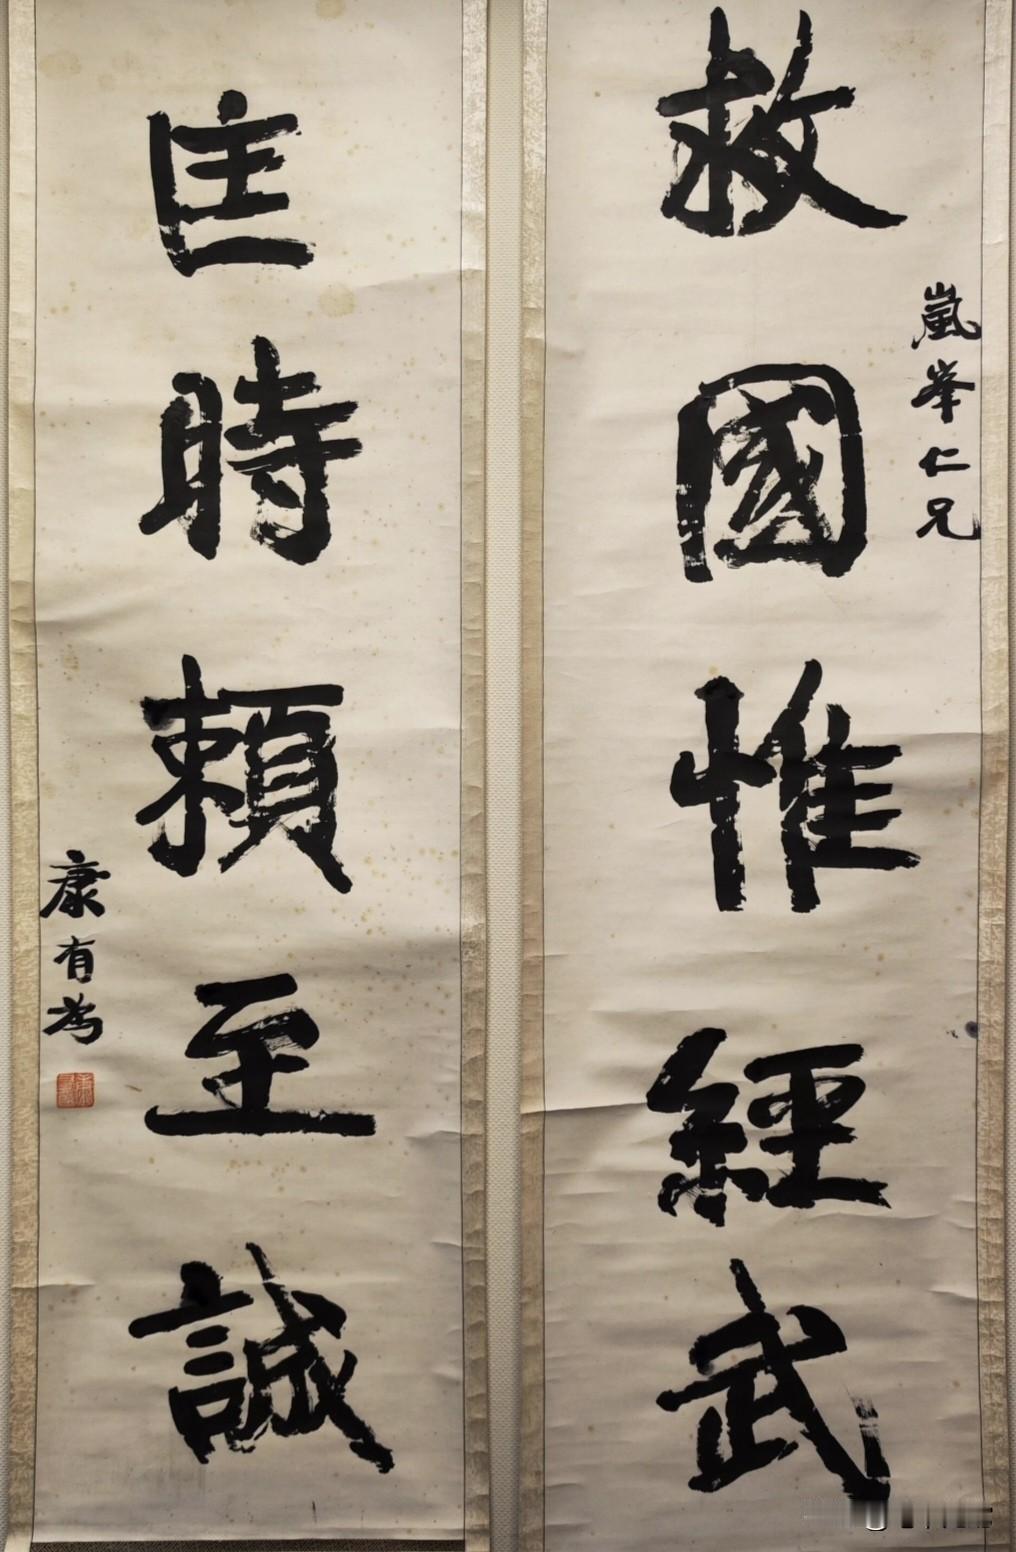 嵐峯仁兄
救國惟經武
匡時賴至誠
康有為